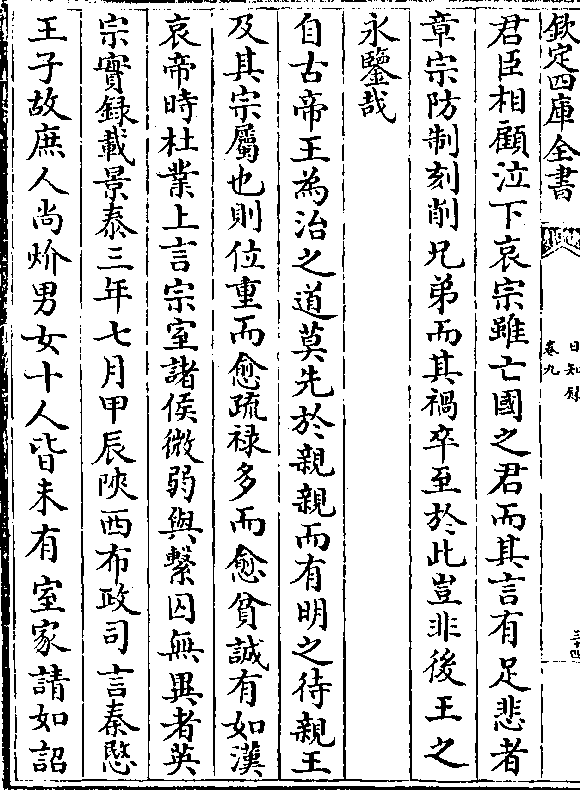 欽定四庫全書
日知錄
卷九
三十四
君臣相顧泣下哀宗雖亡國之君而其言有足悲者
章宗防制刻削兄弟而其禍卒至於此豈非後王之
永鑒哉
自古帝王為治之道莫先於親親而有明之待親王
及其宗屬也則位重而愈疏禄多而愈貧誠有如漢
哀帝時杜業上言宗室諸侯微弱與繫囚無異者英
宗實録載景泰三年七月甲辰陝西布政司言秦愍
王子故庶人尚炌男女十人皆未有室家請如詔